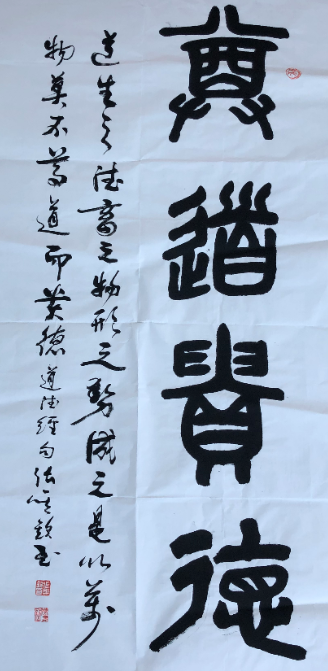 尊道貴德
道生之德畜之物形之勢成之是以萬
物莫不尊道而貴德道德經句